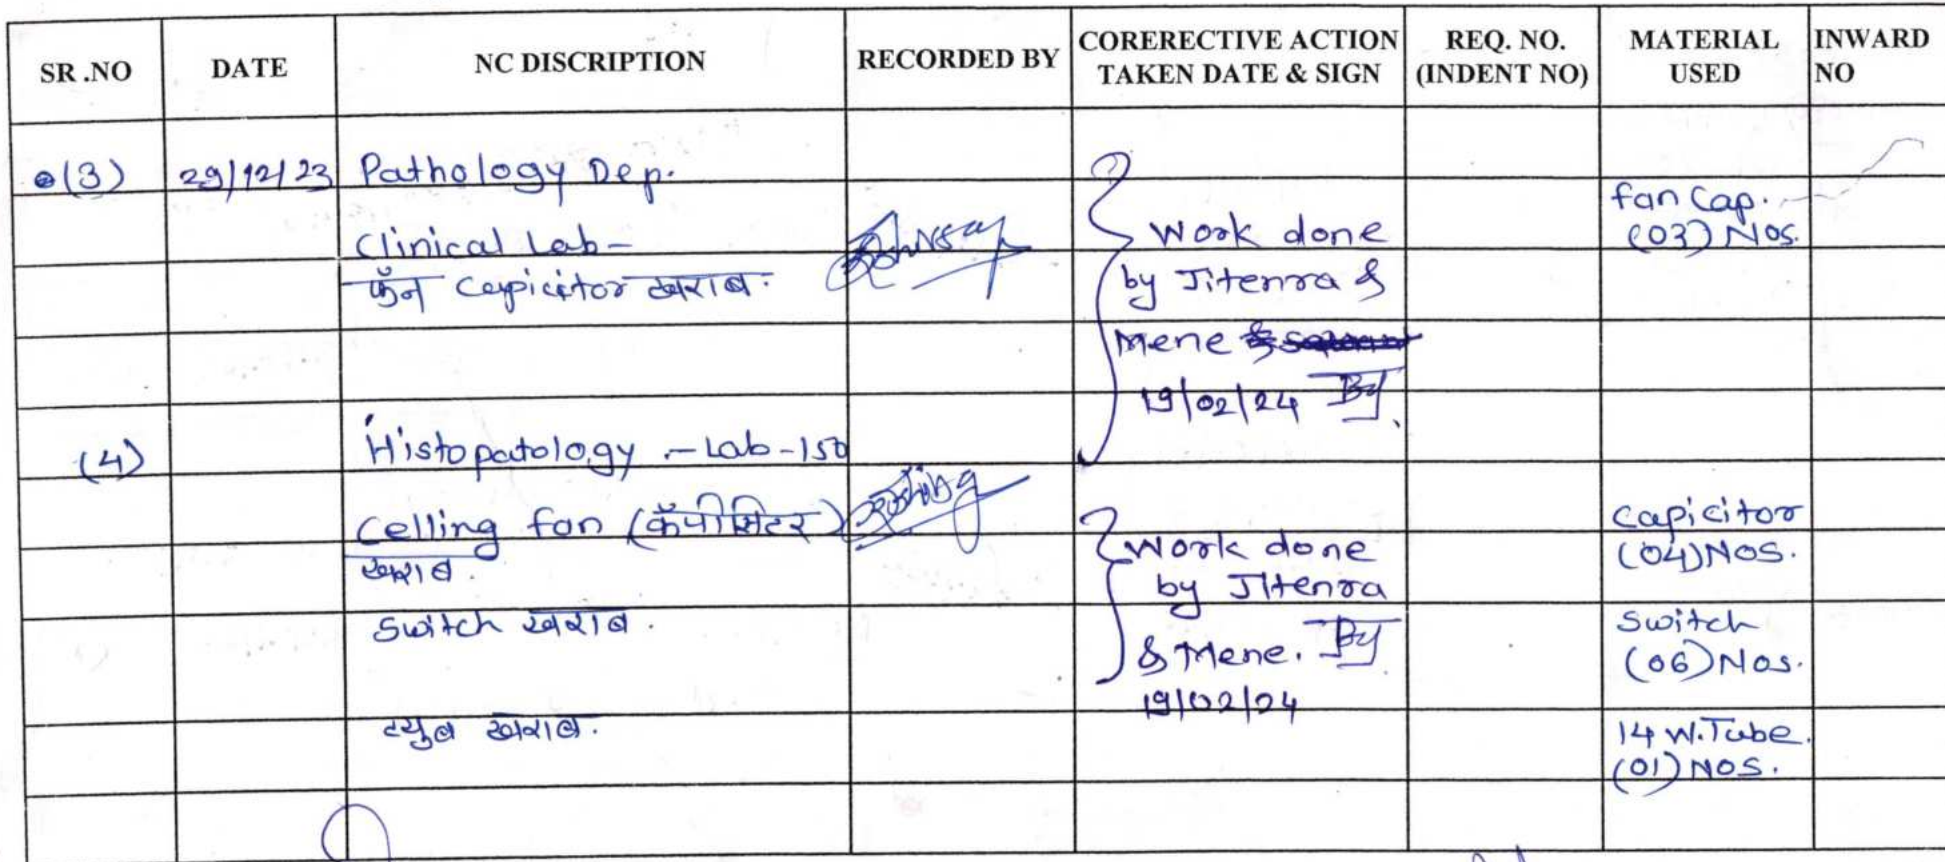 SR .NO DATE NC DISCRIPTION RECORDED BY CORERECTIVE ACTION TAKEN DATE & SIGN REQ. NO. (INDENT NO) MATERIAL USED INWARD NO
(3) 29/12/23 Pathology Dep.
Clinical Lab -
फॅन Capicitor खराब.
Work done
by Jitenra &
Mene
19/02/24
fan Cap.
(03) Nos.
(4) Histopatology - Lab - 150
Celling fan (कॅपीसिटर)
खराब.
Switch खराब.
ट्युब खराब.
Work done
by Jitenra
& Mene.
19/02/24
Capicitor
(04) NOS.
Switch
(06) Nos.
14 W. Tube.
(01) NOS.